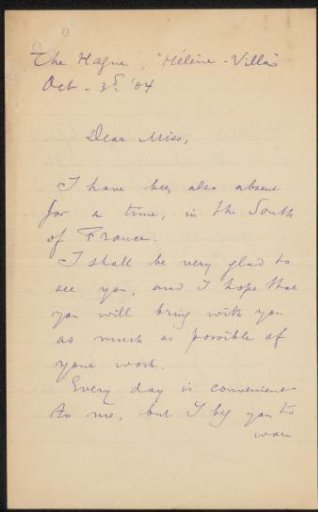 The Hague, "Hélène-Villa"
Oct - 3d. '04
Dear Miss,
I have been also absent
for a time, in the South
of France.
I shall be very glad to
see you, and I hope that
you will bring with you
as much as possible of
your work.
Every day is convenient
to me, but I beg you to
warn